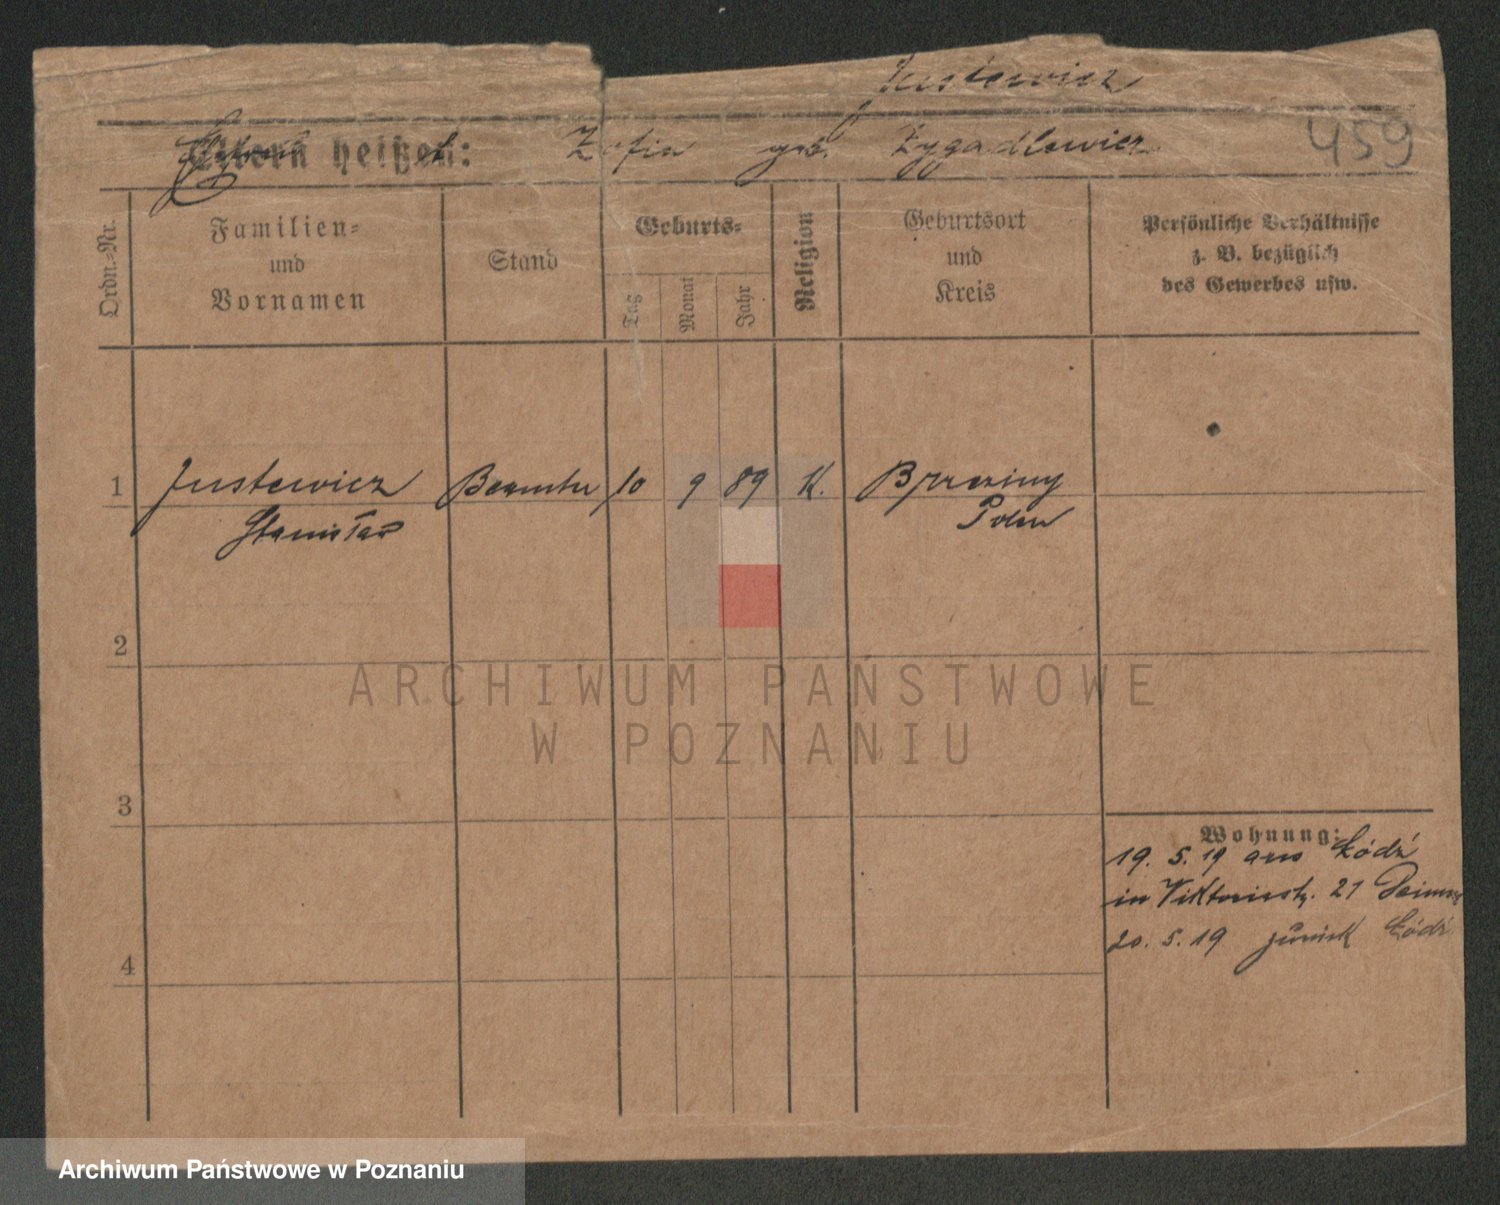 Justewicz
Eltern heißen: Zofia geb. Zygadlewicz
459
Ordn.=Nr.
Familien=
und
Vornamen
Stand
Geburts=
Tag
Monat
Jahr
Religion
Geburtsort
und
Kreis
Persönliche Verhältnisse
z. B. bezüglich
des Gewerbes usw.
1 Justewicz Beamter 10 9 89 K. Brzeziny
Stanisław Polen
2
3
4
Wohnung:
19. 5. 19 aus Łódź
in Viktoriastr. 21
20. 5. 19 zurück Łódź
ARCHIWUM PAŃSTWOWE
W POZNANIU
Archiwum Państwowe w Poznaniu